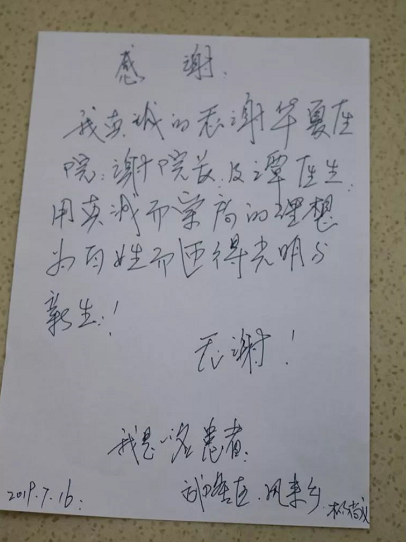 感谢
我真诚的感谢华夏医
院:谢院长及谭医生.
用真诚而崇高的理想
为百姓而 得光明与
新生!
感谢!
我是一名患者.
区.凤来乡.
2019.7.16.